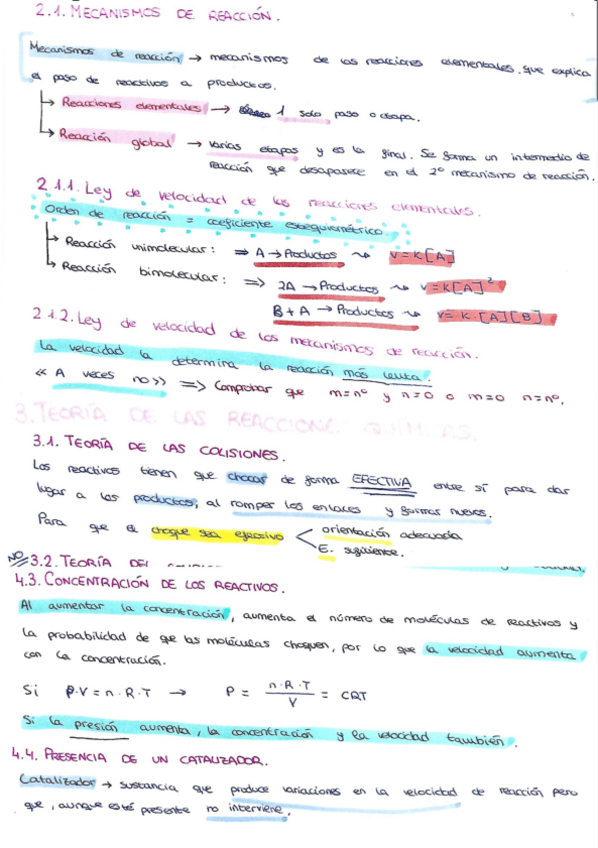 2.1. MECANISMOS DE REACCIÓN.
Mecanismos de reacción → mecanismos de las reacciones elementales, que explica
el paso de reactivos a productos.
↳ Reacciones elementales → 1 solo paso o etapa.
↳ Reacción global → varias etapas y es la final. Se forma un intermedio de
reacción que desaparece en el 2º mecanismo de reacción.
2.1.1. Ley de velocidad de las reacciones elementales.
Orden de reacción = coeficiente estequiométrico.
↳ Reacción unimolecular: ⇒ A → Productos ⇝ v = K[A]
↳ Reacción bimolecular: ⇒ 2A → Productos ⇝ v = K[A]²
B + A → Productos ⇝ v = K·[A][B]
2.1.2. Ley de velocidad de los mecanismos de reacción.
La velocidad la determina la reacción más lenta.
« A veces no » ⇒ Comprobar que m=nº y n=0 o m=0 n=nº.
3. TEORÍA DE LAS REACCIONES QUÍMICAS.
3.1. TEORÍA DE LAS COLISIONES.
Los reactivos tienen que chocar de forma EFECTIVA entre sí para dar
lugar a los productos, al romper los enlaces y formar nuevos.
Para que el choque sea efectivo < orientación adecuada
E. suficiente.
NO 3.2. TEORÍA DEL
4.3. CONCENTRACIÓN DE LOS REACTIVOS.
Al aumentar la concentración, aumenta el número de moléculas de reactivos y
la probabilidad de que las moléculas choquen, por lo que la velocidad aumenta
con la concentración.
Si P·V = n·R·T → P = n·R·T / V = CRT
Si la presión aumenta, la concentración y la velocidad también.
4.4. PRESENCIA DE UN CATALIZADOR.
Catalizador → sustancia que produce variaciones en la velocidad de reacción pero
que, aunque esté presente no interviene.